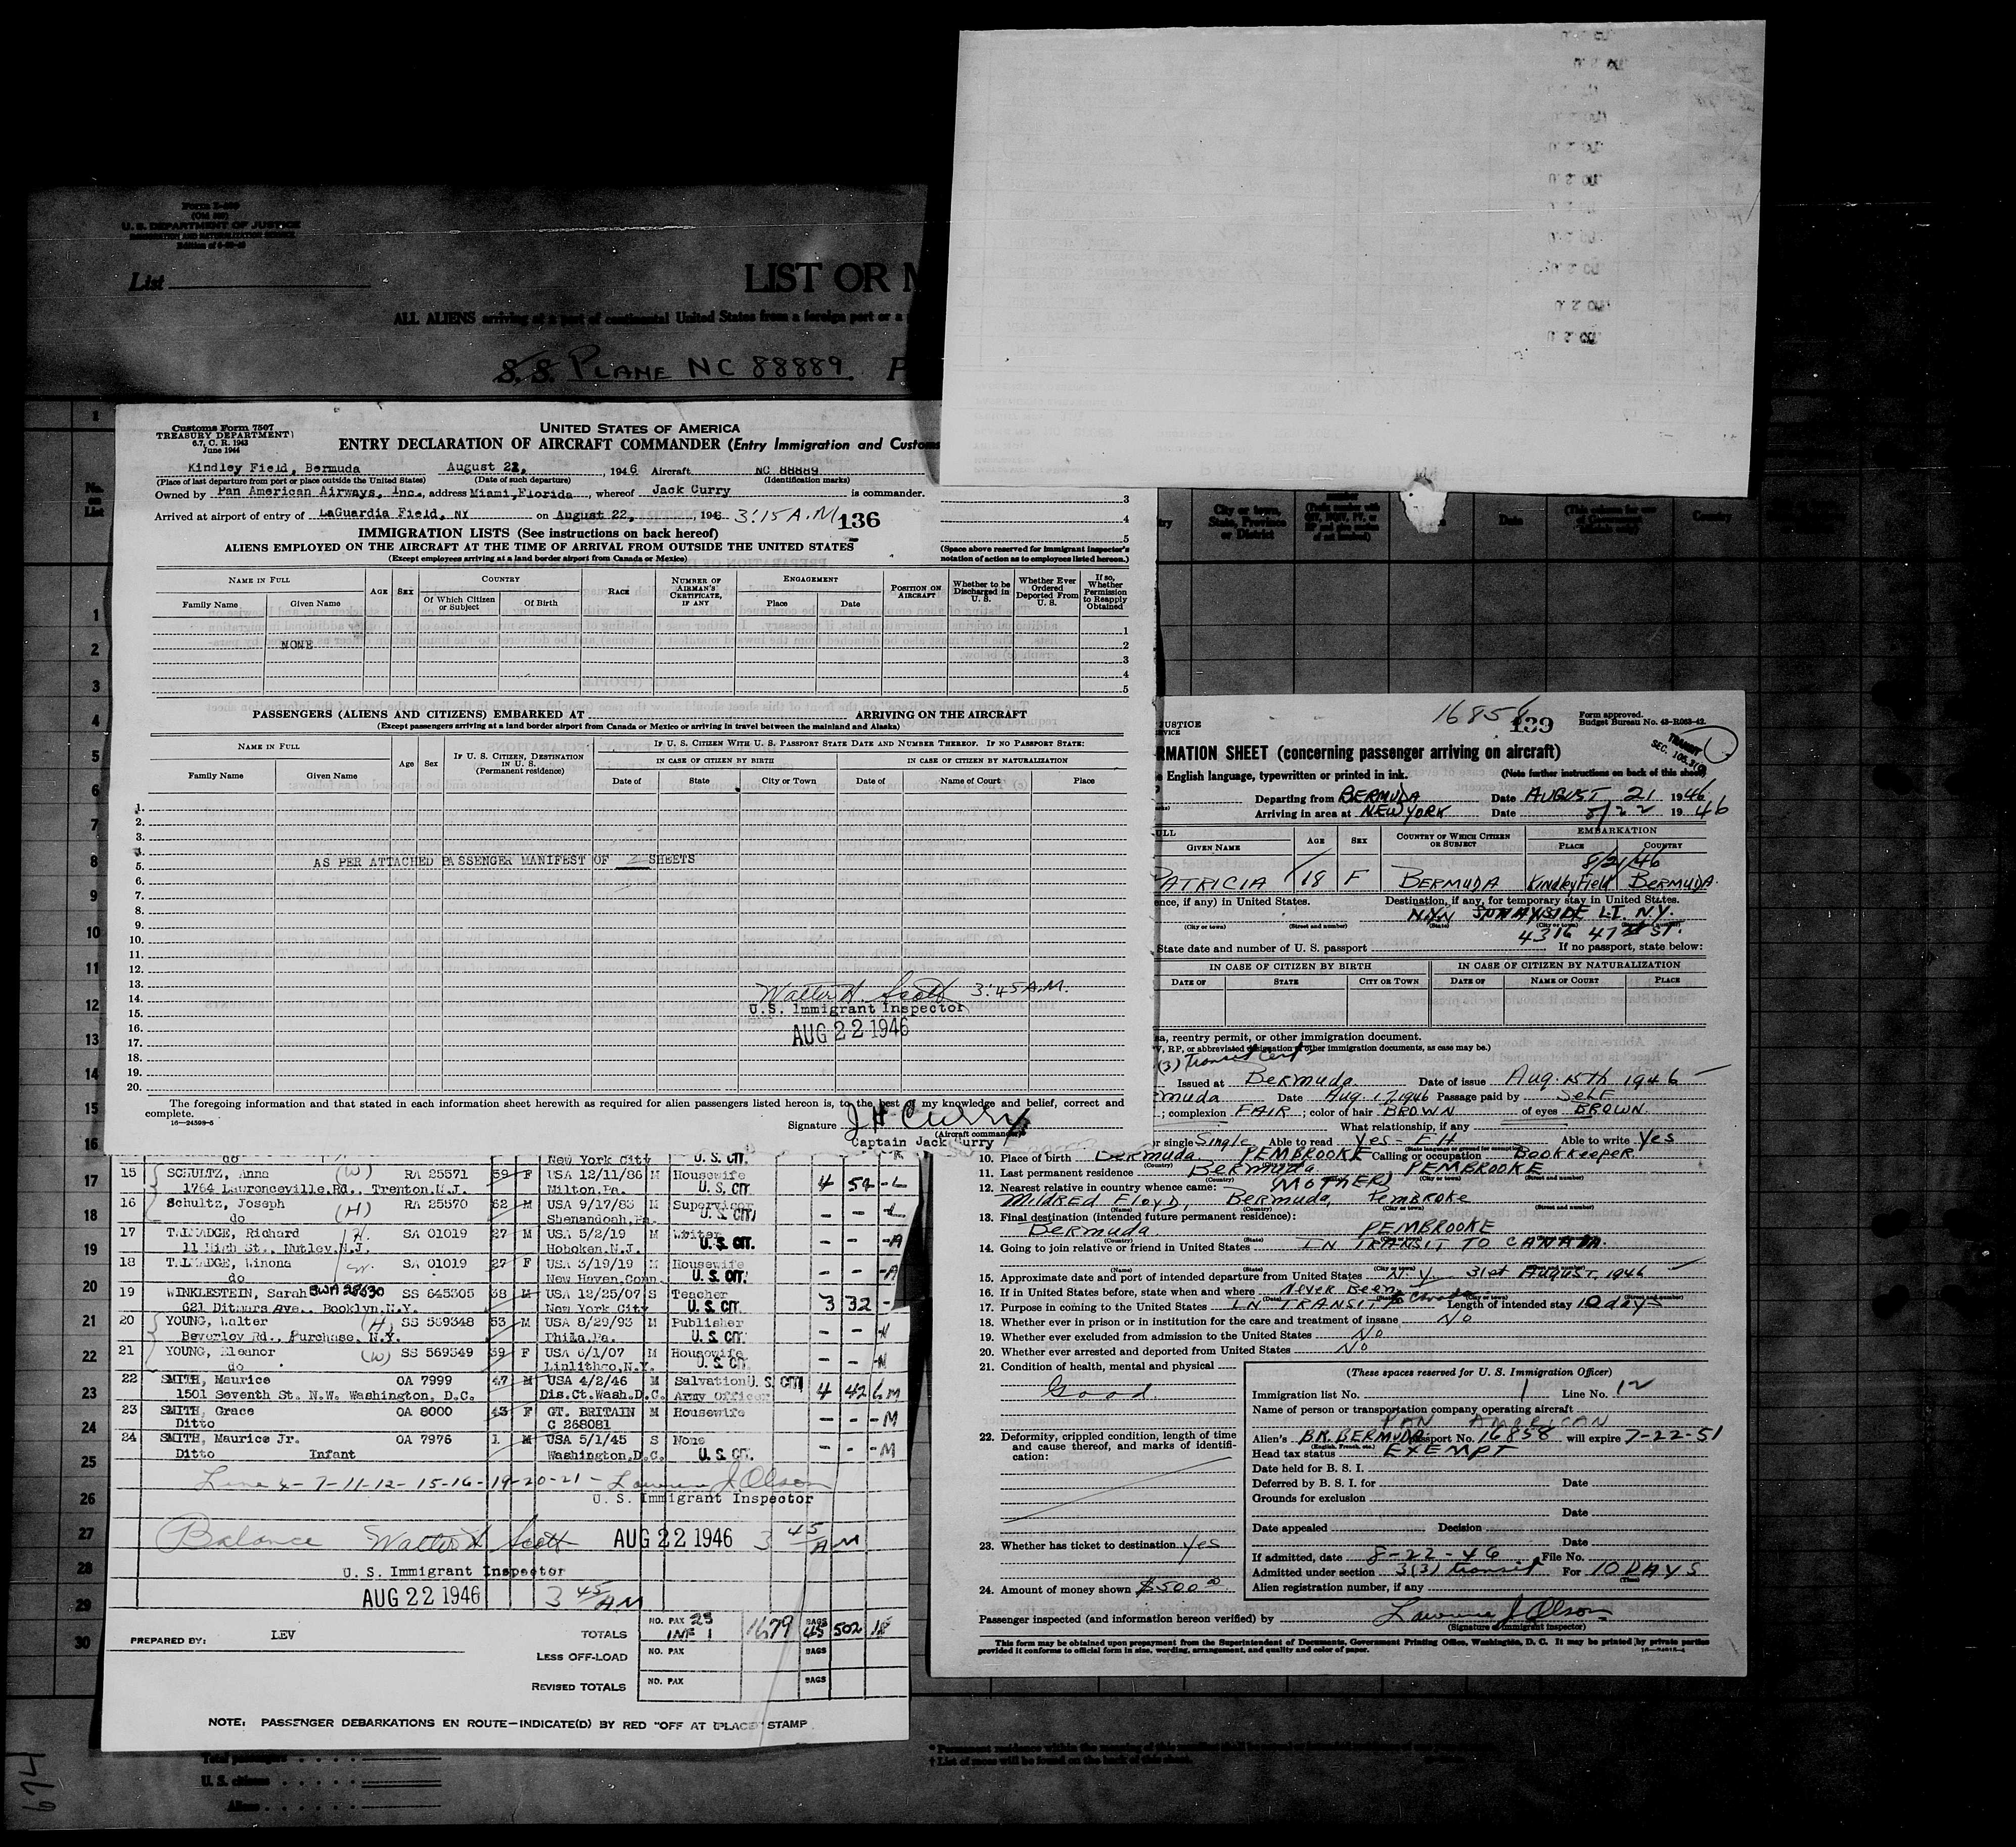 U. S. DEPARTMENT OF JUSTICE
List
LIST OR M
ALL ALIENS arriving at a port of continental United States from a foreign port or a
S. S. PLANE NC 88889.
Customs Form 7507
TREASURY DEPARTMENT
6.7, C. R. 1943
June 1944
UNITED STATES OF AMERICA
ENTRY DECLARATION OF AIRCRAFT COMMANDER (Entry Immigration and Customs
Kindley Field, Bermuda August 22, , 1946 Aircraft NC 88889
(Place of last departure from port or place outside the United States) (Date of such departure) (Identification marks)
Owned by Pan American Airways, Inc., address Miami, Florida , whereof Jack Curry is commander.
Arrived at airport of entry of LaGuardia Field, NY on August 22, , 1946 3:15 A.M. 136
IMMIGRATION LISTS (See instructions on back hereof)
ALIENS EMPLOYED ON THE AIRCRAFT AT THE TIME OF ARRIVAL FROM OUTSIDE THE UNITED STATES
(Except employees arriving at a land border airport from Canada or Mexico)
3
4
5
(Space above reserved for immigrant inspector's
notation of action as to employees listed hereon.)
NAME IN FULL AGE SEX COUNTRY RACE NUMBER OF AIRMAN'S CERTIFICATE, IF ANY ENGAGEMENT POSITION ON AIRCRAFT Whether to be Discharged in U. S. Whether Ever Ordered Deported From U. S. If so, Whether Permission to Reapply Obtained
Family Name Given Name Of Which Citizen or Subject Of Birth Place Date
1
NONE 2
3
4
5
PASSENGERS (ALIENS AND CITIZENS) EMBARKED AT ARRIVING ON THE AIRCRAFT
(Except passengers arriving at a land border airport from Canada or Mexico or arriving in travel between the mainland and Alaska)
NAME IN FULL Age Sex IF U. S. CITIZEN, DESTINATION IN U. S. (Permanent residence) IF U. S. CITIZEN WITH U. S. PASSPORT STATE DATE AND NUMBER THEREOF. IF NO PASSPORT STATE:
IN CASE OF CITIZEN BY BIRTH IN CASE OF CITIZEN BY NATURALIZATION
Family Name Given Name Date of State City or Town Date of Name of Court Place
1.
2.
3.
4.
5. AS PER ATTACHED PASSENGER MANIFEST OF 2 SHEETS
6.
7.
8.
9.
10.
11.
12.
13.
14. Walter H. Scott 3:45 A.M.
15. U.S. Immigrant Inspector
16. AUG 22 1946
17.
18.
19.
20.
The foregoing information and that stated in each information sheet herewith as required for alien passengers listed hereon is, to the best of my knowledge and belief, correct and
complete.
16—24598-5
Signature J H Curry
(Aircraft commander)
Captain Jack Curry
do New York City U. S. CIT.
15 SCHULTZ, Anna (W) RA 25571 59 F USA 12/11/86 M Housewife
1764 Lawrenceville Rd., Trenton, N.J. Milton, Pa. U. S. CIT 4 54 - L
16 Schultz, Joseph (H) RA 25570 62 M USA 9/17/83 M Supervisor
do Shenandoah, Pa. U. S. CIT. - - - L
17 TALMADGE, Richard H. SA 01019 27 M USA 5/2/19 M Writer
11 High St., Nutley, N.J. Hoboken, N.J. U. S. CIT. - - - A
18 TALMADGE, Winona W. SA 01019 27 F USA 3/19/19 M Housewife
do New Haven, Conn. U. S. CIT. - - - A
19 WINKLESTEIN, Sarah BWA 28630 SS 645305 38 M USA 12/25/07 S Teacher
621 Ditmars Ave., Booklyn, N.Y. New York City U. S. CIT. 3 32 -
20 YOUNG, Walter (H) SS 569348 53 M USA 8/29/93 M Publisher
Beverley Rd., Purchase, N.Y. Phila, Pa. U. S. CIT. - - - N
21 YOUNG, Eleanor (W) SS 569349 39 F USA 6/1/07 M Housewife
do Linlithgo, N.Y. U. S. CIT. - - - N
22 SMITH, Maurice OA 7999 47 M USA 4/2/46 M Salvation U. S. CIT
1501 Seventh St. N.W. Washington, D.C. Dis.Ct.Wash.D.C. Army Officer 4 42 6 M
23 SMITH, Grace OA 8000 43 F GT. BRITAIN M Housewife
Ditto C 268081 - - - M
24 SMITH, Maurice Jr. OA 7976 1 M USA 5/1/45 S None
Ditto Infant Washington, D.C. U. S. CIT. - - - M
Line 4-7-11-12-15-16-19-20-21 - Lawrence J Olson
U. S. Immigrant Inspector
Balance Walter H. Scott AUG 22 1946 3 45 AM
U. S. Immigrant Inspector
AUG 22 1946 3 45 AM
PREPARED BY: LEV
TOTALS NO. PAX 23 INF 1 1679 BAGS 45 502 18
LESS OFF-LOAD NO. PAX BAGS
REVISED TOTALS NO. PAX BAGS
NOTE: PASSENGER DEBARKATIONS EN ROUTE—INDICATE(D) BY RED "OFF AT (PLACE)" STAMP
Total passengers
U. S. citizens
Aliens
674
No. on List
1
1
2
3
4
5
6
7
8
9
10
11
12
13
14
15
16
17
18
19
20
21
22
23
24
25
26
27
28
29
30
City or town, State, Province or District
Date
Country
16858 139
Form approved.
Budget Bureau No. 43-R063-42.
JUSTICE
RMATION SHEET (concerning passenger arriving on aircraft)
TRANSIT
English language, typewritten or printed in ink. (Note further instructions on back of this sheet)
Departing from BERMUDA Date AUGUST 21 1946
Arriving in area at NEW YORK Date 8/22 1946
ULL AGE SEX COUNTRY OF WHICH CITIZEN OR SUBJECT EMBARKATION
GIVEN NAME PLACE COUNTRY
8/21/46
PATRICIA 18 F BERMUDA Kindley Field BERMUDA.
ence, if any) in United States. Destination, if any, for temporary stay in United States.
SUNNYSIDE L.I. N.Y.
(City or town) (Street and number) (State) (City or town) (Street and number)
4316 47th ST.
State date and number of U. S. passport If no passport, state below:
IN CASE OF CITIZEN BY BIRTH IN CASE OF CITIZEN BY NATURALIZATION
DATE OF STATE CITY OR TOWN DATE OF NAME OF COURT PLACE
sa, reentry permit, or other immigration document.
V, RP, or abbreviated designation of other immigration documents, as case may be.)
(3) Transit Cert
Issued at Bermuda Date of issue Aug. 15th 1946
muda Date Aug. 17, 1946 Passage paid by SELF
; complexion FAIR ; color of hair BROWN of eyes BROWN.
What relationship, if any
or single Single Able to read Yes - EH Able to write Yes
10. Place of birth Bermuda PEMBROOKE Calling or occupation BOOKKEEPER
11. Last permanent residence Bermuda PEMBROOKE
(Country) (City or town) (Street and number)
12. Nearest relative in country whence came: (MOTHER)
MILDRED FLOYD, Bermuda, Pembroke
(Name) (Country) (City or town) (Street and number)
13. Final destination (intended future permanent residence):
Bermuda PEMBROOKE
14. Going to join relative or friend in United States IN TRANSIT TO CANADA.
15. Approximate date and port of intended departure from United States N. Y. 31st AUGUST, 1946
16. If in United States before, state when and where Never Been
17. Purpose in coming to United States IN TRANSIT to Canada Length of intended stay 10 days
18. Whether ever in prison or in institution for the care and treatment of insane No
19. Whether ever excluded from admission to the United States No
20. Whether ever arrested and deported from United States No
21. Condition of health, mental and physical
Good.
22. Deformity, crippled condition, length of time
and cause thereof, and marks of identifi-
cation:
23. Whether has ticket to destination yes
24. Amount of money shown $500.00
(These spaces reserved for U. S. Immigration Officer)
Immigration list No. 1 Line No. 12
Name of person or transportation company operating aircraft
PAN AMERICAN
Alien's BR. BERMUDA passport No. 16858 will expire 7-22-51
(English, French, etc.)
Head tax status EXEMPT
Date held for B. S. I.
Deferred by B. S. I. for Date
Grounds for exclusion
Date
Date appealed Decision
Date
If admitted, date 8-22-46 File No.
Admitted under section 3(3) transit For 10 DAYS
(Time)
Alien registration number, if any
Passenger inspected (and information hereon verified) by Lawrence J Olson
(Signature of immigrant inspector)
This form may be obtained upon prepayment from the Superintendent of Documents, Government Printing Office, Washington, D. C. It may be printed by private parties
provided it conforms to official form in size, wording, arrangement, and quality and color of paper.
* Permanent residence within the meaning of this manifest shall be
† List of races will be found on the back of this sheet.